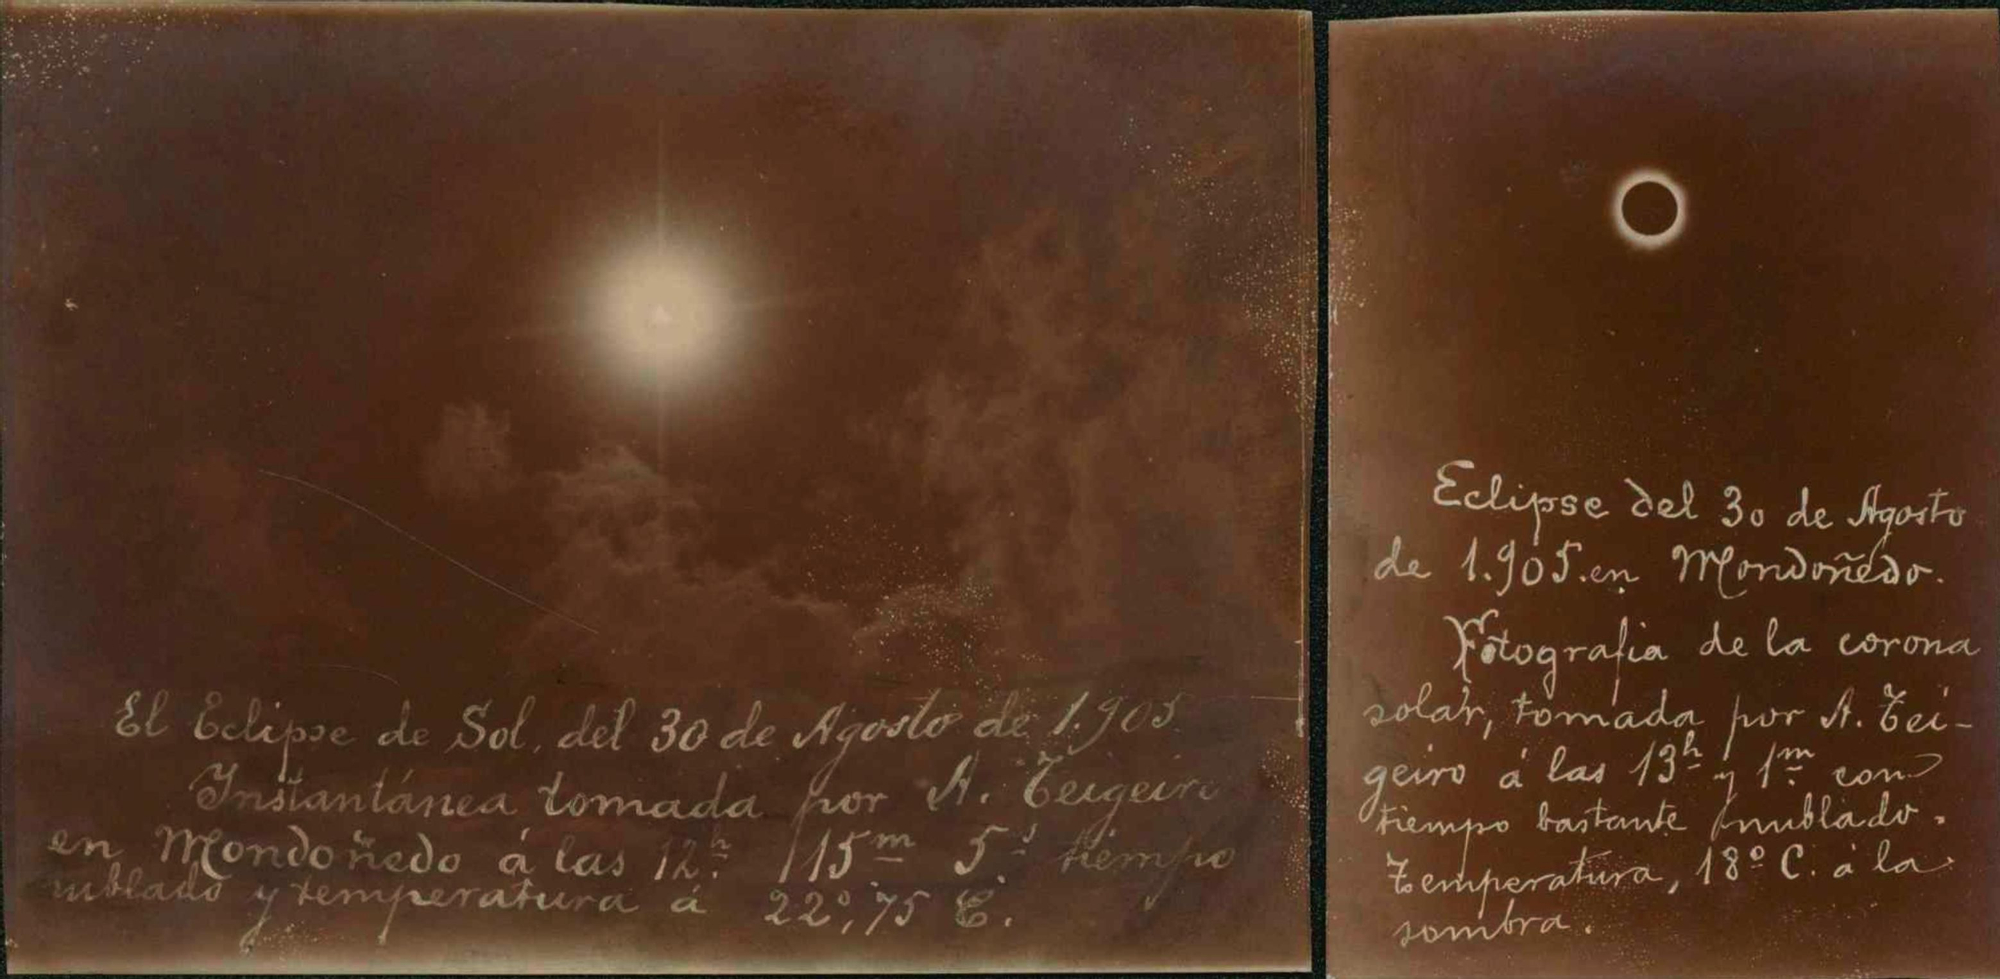 El Eclipse de Sol, del 30 de Agosto de 1.905
Instantánea tomada por A. Teigeiro
en Mondoñedo á las 12h 15m 5s tiempo
nublado y temperatura á 22º,75 C.
Eclipse del 30 de Agosto
de 1.905.en Mondoñedo.
Fotografia de la corona
solar, tomada por A. Tei-
geiro á las 13h y 1m con
tiempo bastante nublado.
Temperatura, 18º C. á la
sombra.